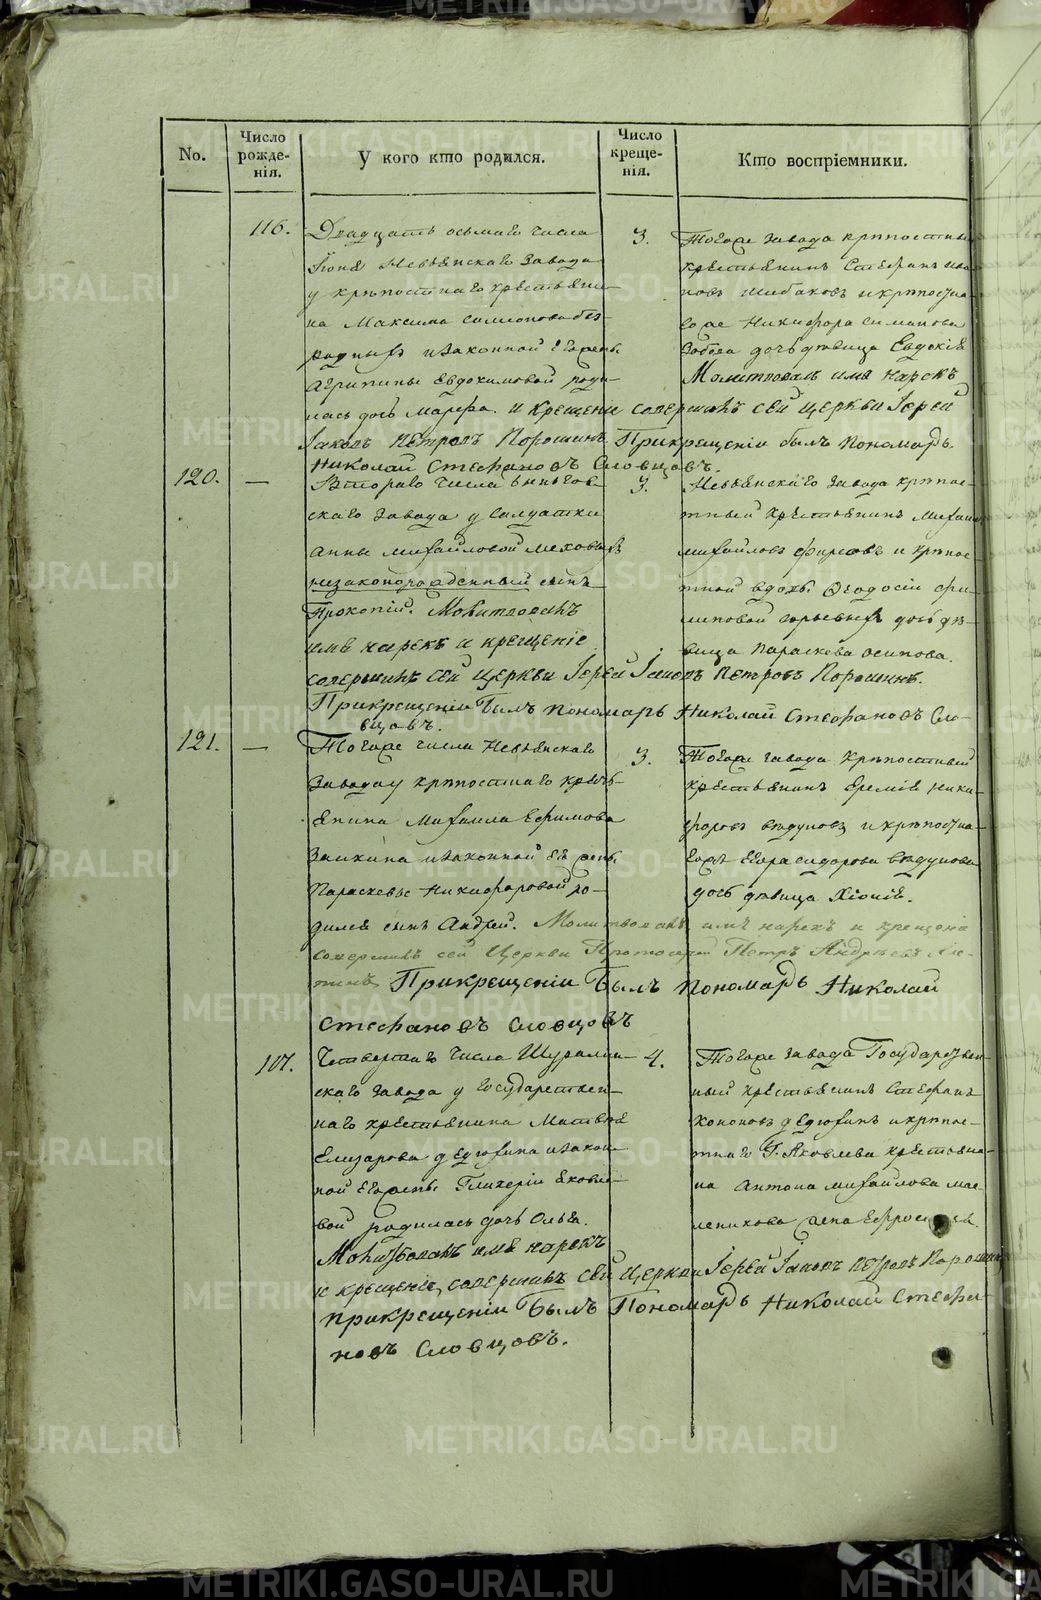 No.
Число рожде-нія.
У кого кто родился.
Число креще-нія.
Кто воспріемники.
116.
Двадцать осьмаго числа
Іюня Невьянскаго завода
у крѣпостнаго крестьяни-
на Максима Симионова без-
родныхъ и законной его жены
Агрипины Евдокимовой роди-
лась дочь Марфа. и Крещеніе совершалъ сей церкви Іерей
Іаковъ Петровъ Порошинъ. При крещеніи былъ пономарь
Николай Стефановъ Словцовъ.
3.
Тогоже завода крѣпостный
крестьянинъ Стефанъ Ива-
новъ Шибаковъ и крѣпостна-
гоже Никифора Симанова
дочь дѣвица Евдокія
Молитвовалъ имя нарекъ
120.
—
Втораго числа Быньгов-
скаго завода у солдатки
Анны Михайловой
незаконорожденный сынъ
Прокопій. Молитвовалъ
имя нарекъ и крещеніе
совершилъ сей церкви Іерей Іаковъ Петровъ Порошинъ.
При крещеніи былъ пономарь Николай Стефановъ Сло-
вцовъ.
3.
Невьянскаго завода крѣпос-
тный крестьянинъ Михаилъ
Михайловъ Фирсовъ и крѣпос-
тной вдовы Феодосіи Фи-
липовой дочь дѣ-
вица Параскева Осипова.
121.
—
Тогоже числа Невьянскаго
завода у крѣпостнаго кресть-
янина Михаила Ефимова
Заикина и законной его жены
Параскевы Никифоровой ро-
дился сынъ Андрей. Молитвовалъ имя нарекъ и крещеніе
совершилъ сей Церкви Протоіерей Петръ Андреевъ
При крещеніи былъ пономарь Николай
Стефановъ Словцовъ
3.
Тогоже завода крѣпостный
крестьянинъ Еремѣй Ники-
форовъ Вѣдуновъ и крѣпостна-
гоже Егора Сидорова Вѣдунова
дочь дѣвица Хіонія.
107.
Четвертаго числа Шуралин-
скаго завода у государствен-
наго крестьянина Матвѣя
Елизарова Дедюхина и закон-
ной его жены Гликеріи Яковле-
вой родилась дочь Ольга.
Молитвовалъ имя нарекъ
и крещеніе совершилъ сей церкви Іерей Іаковъ Петровъ Порошинъ
при крещеніи былъ Пономарь Николай Стефа-
новъ Словцовъ.
4.
Тогоже завода Государствен-
ный крестьянинъ Стефанъ
Кононовъ Дедюхинъ и крѣпос-
тнаго Г. Яковлева крестьяни-
на Антона Михайлова Мас-
леникова жена
METRIKI.GASO-URAL.RU